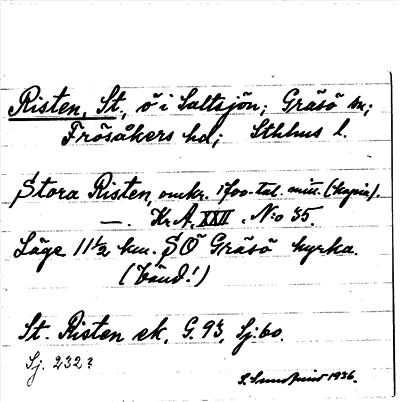 Risten, St., ö i Saltsjön; Gräsö sn;
Frösåkers hd; Sthlms l.
Stora Risten, omkr. 1700-tal. min. (kopia).
—. Kr.A. XXII. N:o 35.
Läge 11½ km. SÖ Gräsö kyrka.
(bänd!)
St. Risten ek. G. 93, Sj. 60.
Sj. 232?
S. Sundqvist 1936.